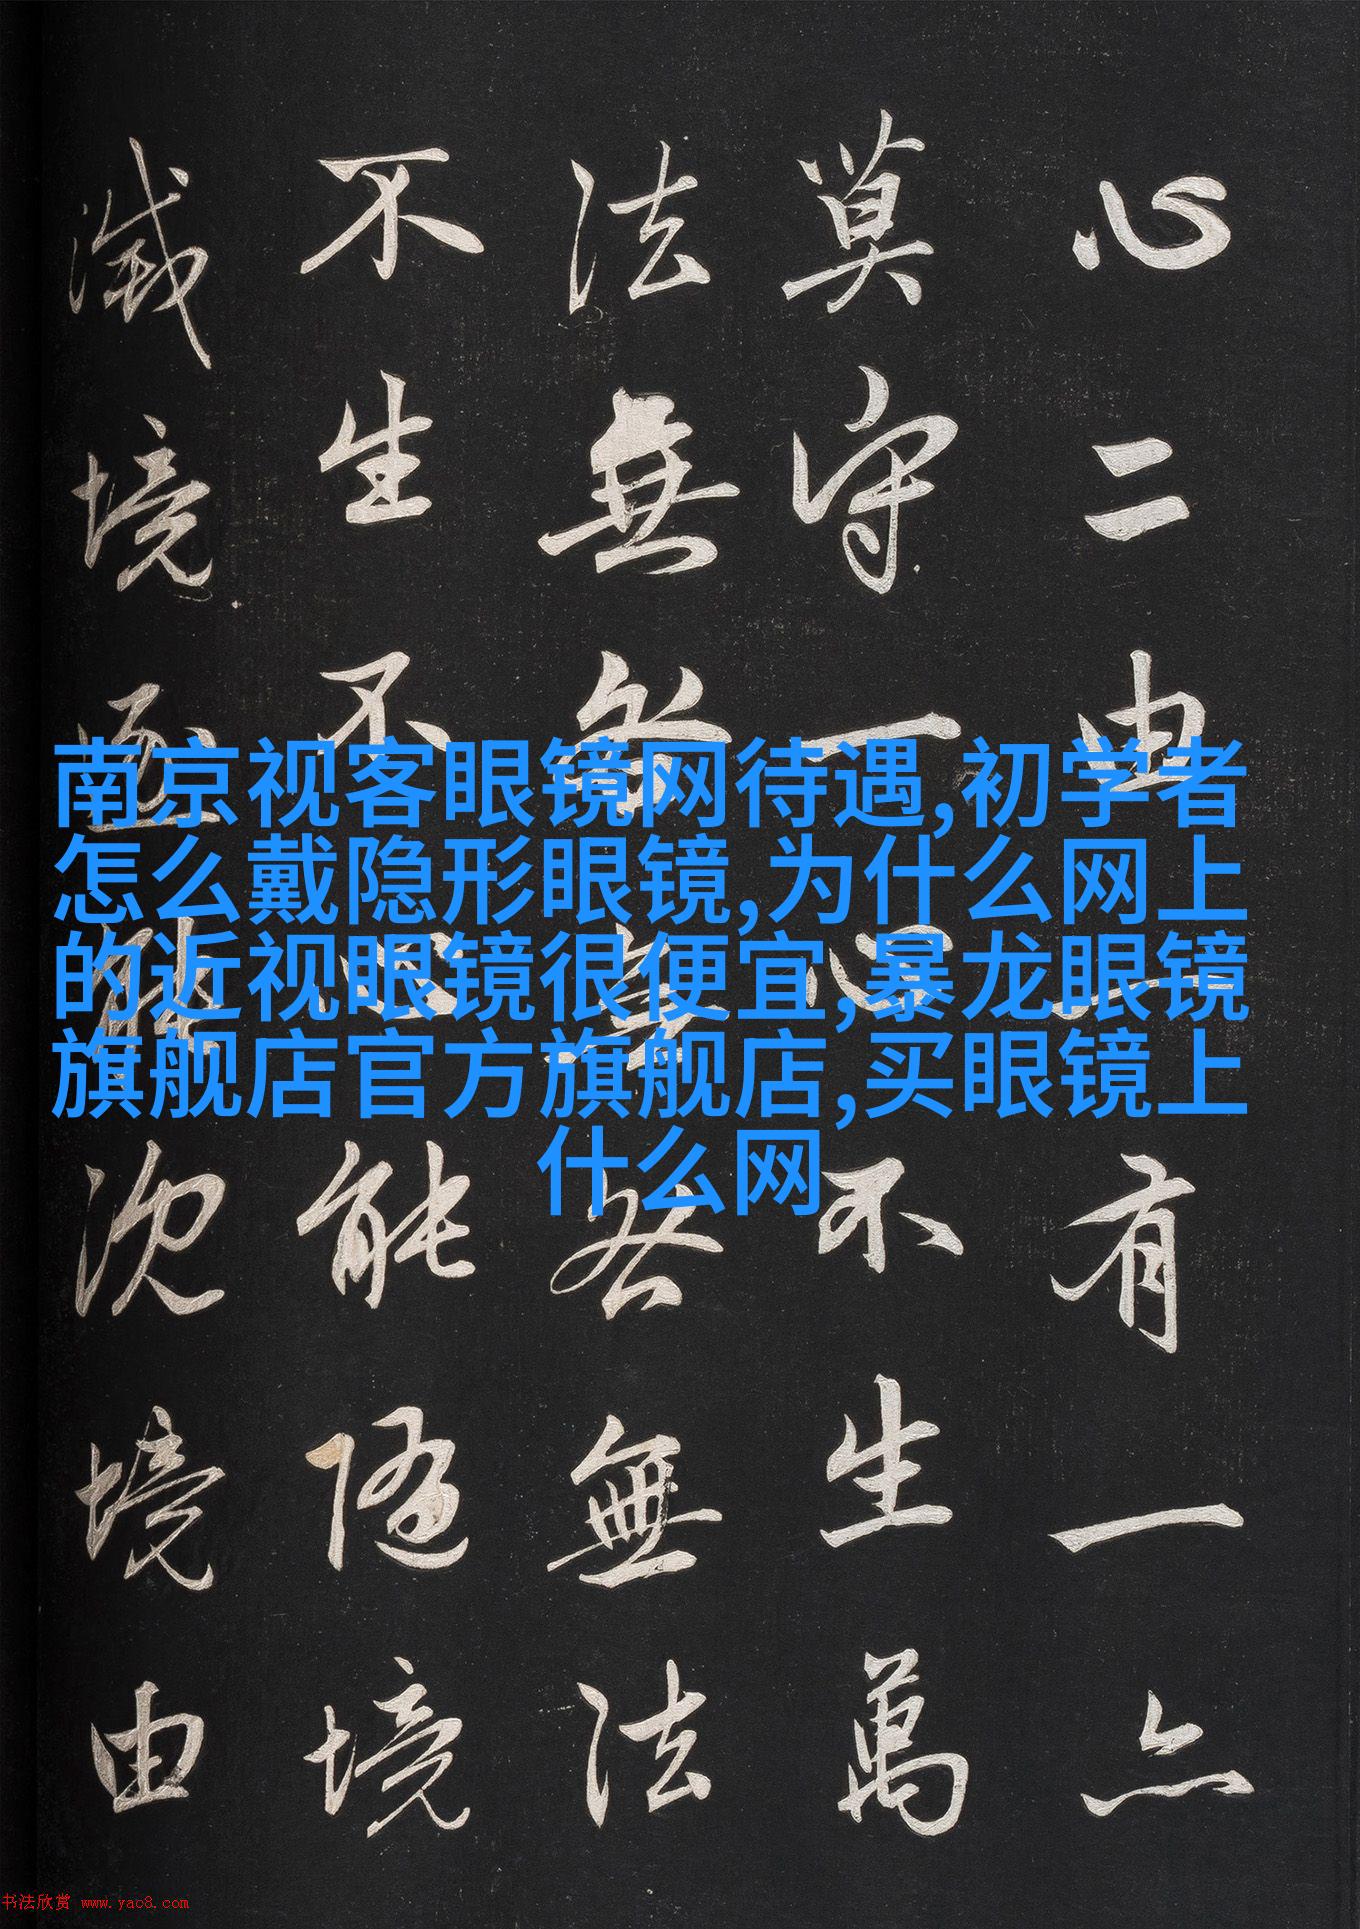 心二由一有一亦
莫守一心不生萬
法無咎無咎無法
不生不心能随境
滅境逐能沉境由
南京视客眼镜网待遇,初学者
怎么戴隐形眼镜,为什么网上
的近视眼镜很便宜,暴龙眼镜
旗舰店官方旗舰店,买眼镜上
什么网
书法欣赏 www.yac8.com